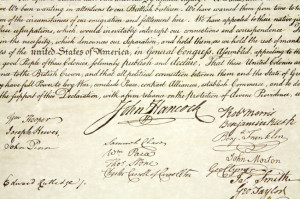 We been wanting in attentions to our Brittish brethren. We have warned them from time to
of the circumstances of our emigration and settlement here. We have appealed to their native
usurpations, which would inevitably interrupt our connections and correspondence.
necessity, which denounces our Separation, and hold them, as we hold the rest of
united States of America, in General Congress, Assembled, appealing to the
good People of these Colonies, solemnly publish and declare, That these United
to the British Crown, and that all political connection between them and the State of
have full Power to levy War, conclude Peace, contract Alliances, establish Commerce, and to
the support of this Declaration, with a firm reliance on the Protection of divine Providence
John Hancock
Robt Morris
Wm Hooper
Benjamin Rush
Joseph Hewes,
Benj. Franklin
John Penn
Samuel Chase
John Morton
Wm Paca
Geo Clymer
Thos. Stone
Jas. Smith
Charles Carroll of Carrollton
Geo. Taylor
Edward Rutledge